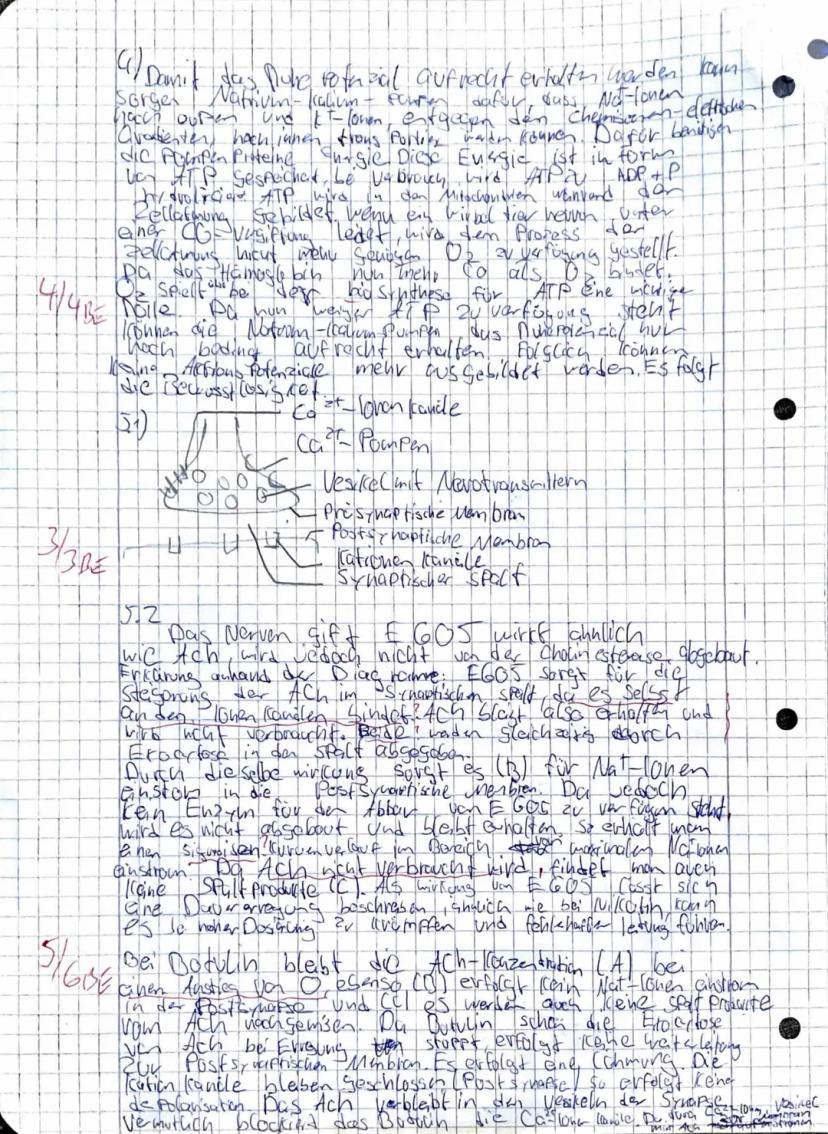 4) Damit das Ruhepotenzial aufrecht erhalten werden kann
sorgen Natrium-Kalium-Pumpen dafür, dass Na+-Ionen
nach außen und K+-Ionen, entgegen den chemischen-elektischen
Gradienten, nach innen trans portiert werden können. Dafür benötigen
die Pumpen Proteine Energie Diese Energie ist in form
von ATP gespeichert, bei verbrauch wird ATP zu ADP + P
hydrolisiert ATP wird in den Mitochondrien während der
Zellatmung gebildet, wenn ein wirbel tier nervon unter
einer CO-Vergiftung leidet, wird dem Prozess der
Zellatmung nicht mehr genügen O2 zu verfügung gestellt.
Da das Hämoglobin nun mehr CO als O2 bindet.
O2 spielt bei der biosynthese für ATP eine wichtige
Rolle. Da nun weniger ATP zu verfügung steht
können die Natrium-Kalium Pumpen das Ruhepotenzial nur
noch bedingt aufrecht erhalten. Folglich können
keine Aktions Potenziale mehr ausgebildet werden. Es folgt
die Bewusstlosigkeit.
4/4 BE
5.1)
Ca2+-Ionen kanäle
Ca2+-Pumpen
Vesikel mit Neurotransmittern
Präsynaptische Membran
Postsynaptische Membran
Kationen kanäle
Synaptischer Spalt
3/3 BE
5.2
Das Nerven gift E 605 wirkt ähnlich
wie Ach wird jedoch nicht von der Cholinesterase abgebaut.
Erklärung anhand der Diagramme: E605 sorgt für die
steigerung der ACh im Synaptischen spalt, da es selbst
an den Ionen kanälen bindet. ACh bleibt also erhalten und
wird nicht verbraucht. Beide werden gleichzeitig durch
Exocytose in den Spalt abgegeben.
Durch dieselbe wirkung sorgt es (B) für Na+-Ionen
einstom in die Postsynaptische Membran. Da jedoch
kein Enzym für den Abbau von E 605 zu verfügen steht,
wird es nicht abgebaut und bleibt erhalten. So erhält man
einen kurvenverlauf im Bereich maximalen Na+Ionen
einstrom. Da ACh nicht verbraucht wird, findet man auch
keine Spaltprodukte (C). Als wirkung von E 605 lässt sich
eine Dauererregung beschreiben, ähnlich wie bei Nikotin, kann
es so hoher Dosierung zu krämpfen und fehlerhafter leitung führen.
5/6 BE
Bei Botulin bleibt die ACh-Konzentration (A) bei
einen Anstieg von 0, ebenso (B) erfolgt kein Na+-Ionen einstrom
in der Postsynapse und (C) es werden auch keine spaltprodukte
vom ACh nachgewisen. Da Botulin schon die Exocytose
von ACh bei Erregung stoppt, erfolgt keine weiterleitung
zur Postsynaptischen Membran. Es erfolgt eine Lähmung. Die
Kation Kanäle bleiben geschlossen (Postsynapse) so erfolgt keine
depolarisation. Das ACh verbleibt in den Vesikeln der Synapse
Vermutlich blockiert das Botulin die Ca2+-Ionen kanäle. Da durch Ca2+-Ionen Vesikel